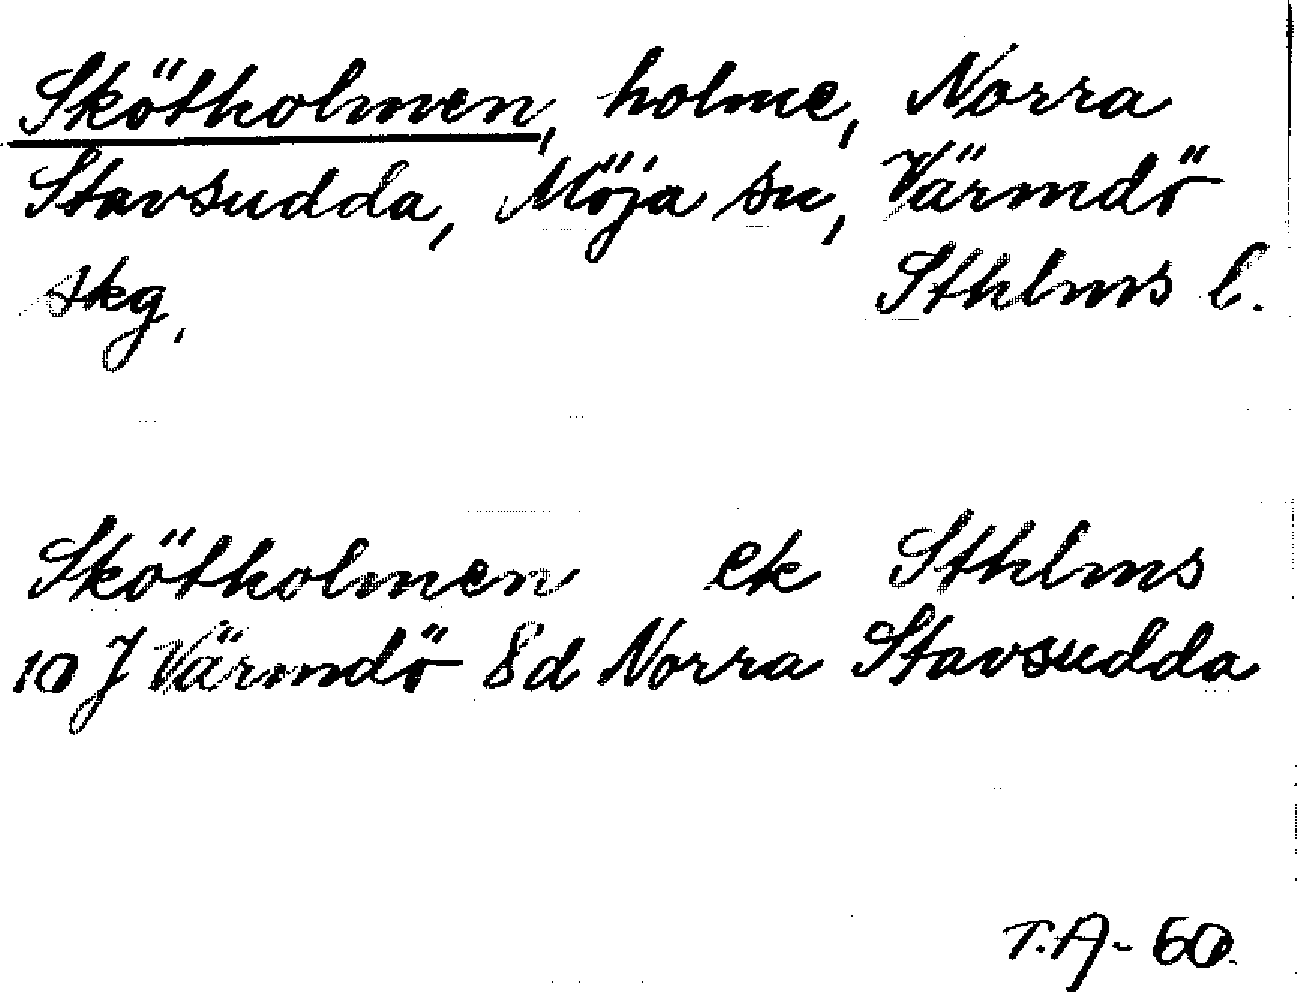 Skötholmen, holme, Norra
Stavsudda, Möja sn, Värmdö
skg, Sthlms l.
Skötholmen ek Sthlms
10 J Värmdö 8d Norra Stavsudda
T.A-60